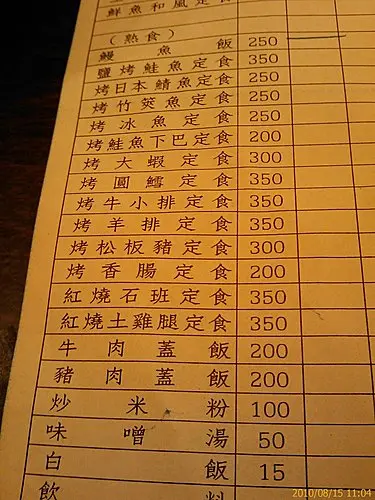 鮮魚和風定食
(熟食)
鰻魚飯 250
鹽烤鮭魚定食 350
烤日本鯖魚定食 250
烤竹筴魚定食 250
烤冰魚定食 250
烤鮭魚下巴定食 200
烤大蝦定食 300
烤圓鱈定食 350
烤牛小排定食 350
烤羊排定食 350
烤松板豬定食 300
烤香腸定食 200
紅燒石班定食 350
紅燒土雞腿定食 350
牛肉蓋飯 200
豬肉蓋飯 200
炒米粉 100
味噌湯 50
白飯 15
飲料
2010/08/15 11:04